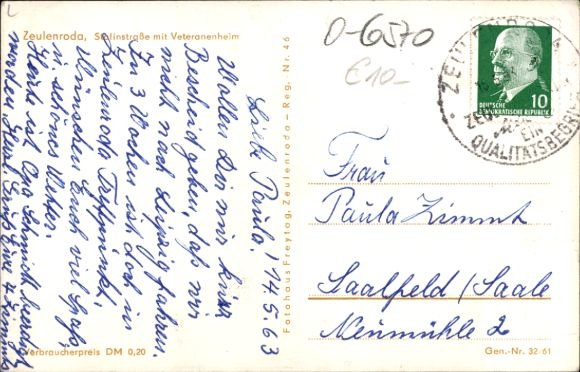 Zeulenroda, Stalinstraße mit Veteranenheim
14.5.63
Liebe Paula!
Wollte Dir nur kurz
Bescheid geben, daß wir
nicht nach Leipzig fahren.
In 3 Wochen ist doch in
Zeulenroda Treffpunkt.
Wünschen Euch viel Spaß,
u. schönes Wetter.
Heute ist Opa Schmidt beerdigt
worden. Herzl. Grüße
Verbraucherpreis DM 0,20
Fotohaus Freytag, Zeulenroda – Reg. Nr. 46
O-6570
€10-
DEUTSCHE
DEMOKRATISCHE REPUBLIK
10
ZEULENRODA
EIN
QUALITÄTSBEGRIFF
Frau
Paula Zimmt
Saalfeld/Saale
Neumühle 2
Gen.-Nr. 32 61